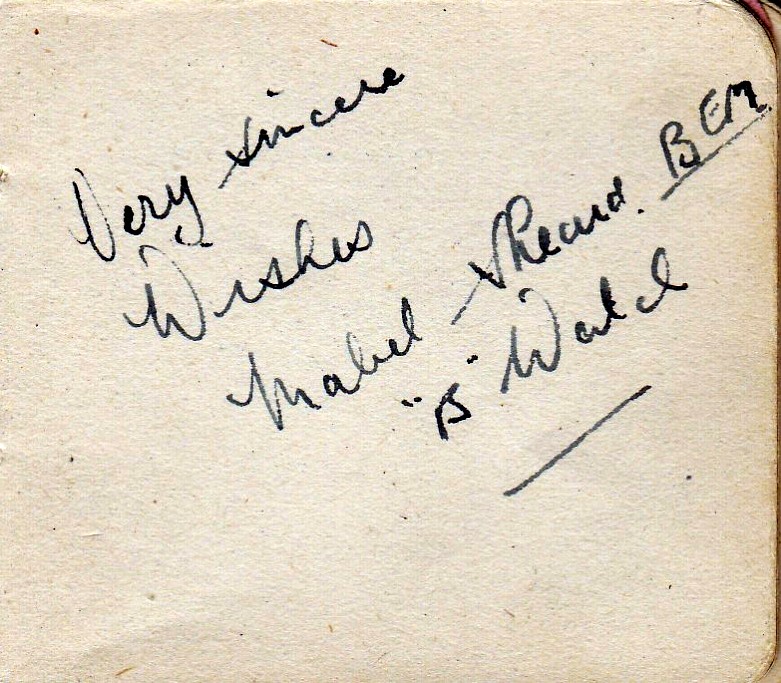 Very sincere
Wishes
Mabel Sheard. BEM
"B" Ward